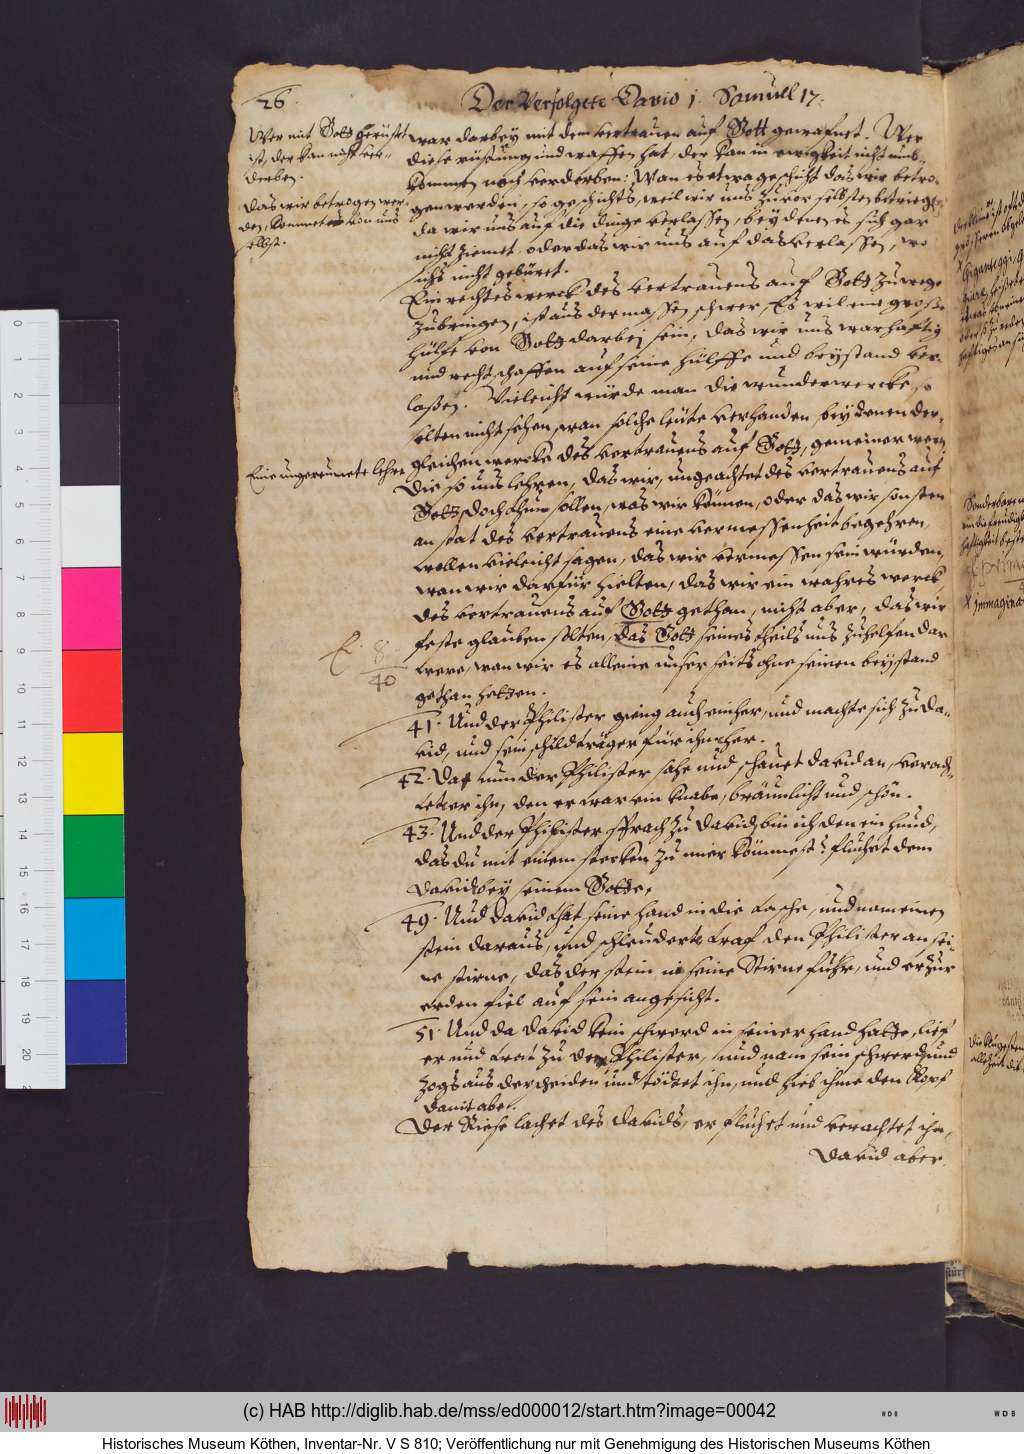 26.
Der Verfolgete David 1. Samuell 17.
Wer mit Gott gerüstet
ist, der kan nicht ver-
derben.
Das wir betrogen wer-
den, kommet von uns
selbst.
war darbey mit dem vertrauen auf Gott gewafnet. Wer
diese rüstung und waffen hat, der kan in ewigkeit nicht umb-
kommen noch verderben: Wan es etwa geschicht das wir betro-
gen werden, so geschichts, weil wir uns zuvor selbsten betriegen
da wir uns auf die dinge verlassen, bey denen es sich gar
nicht ziemet, oder das wir uns auf das verlassen, wo
sichs nicht gebüret.
Ein rechtes werck des vertrauens auf Gott zuwege
zubringen, ist aus dermassen schwer, Es wil eine große
hülfe von Gott darbei sein, das wir uns warhaftig
und rechtschaffen auf seine hülffe und beystand ver-
laßen. Vieleicht würde man die wunderwercke so
selten nicht sehen, wan solche leute verhanden, bey denen der-
gleichen wercke des vertrauens auf Gott, gemeiner wern
Eine ungereumete lehre
Die so uns lehren, das wir, ungeachtet des vertrauens auf
Gott, doch thun sollen, was wir können, oder das wir sonsten
an stat des vertrauens eine vermessenheit begehren,
wollen vieleicht sagen, das wir vermessen sein würden,
wan wir darfür hielten, das wir ein wahres werck
des vertrauens auf Gott gethan, nicht aber, das wir
feste glauben solten, das Gott seines theils uns zuhelfen dar
were, wan wir es alleine unser seits ohne seinen beystand
gethan hetten.
8.
40
41. Und der Philister gieng auch einher, und machte sich zu Da-
vid, und sein schildträger für ihm her.
42. Da nun der Philister sahe und schauet David an, verach-
tet er ihn, den er war ein knabe, bräunlicht und schön.
43. Und der Philister sprach zu David, bin ich den ein hund,
das du mit einem stecken zu mier kömmest? fluchet dem
David bey seinem Gotte,
49. Und David that seine hand in die tasche, und nam einen
stein daraus, und schleudert, traf den Philister an sei-
ne stirne, das der stein in seine Stirne fuhr, und er zur
erden fiel auf sein angesicht.
51. Und da David kein schwerd in seiner hand hatte, lief
er und trat zu dem Philister, und nam sein schwerd, und
zogs aus der scheiden und tödtet ihn, und hieb ihme den kopf
damit abe.
Der Riese lachet des Davids, er fluchet und verachtet ihn,
David aber
(c) HAB http://diglib.hab.de/mss/ed000012/start.htm?image=00042
WDB
WDB
Historisches Museum Köthen, Inventar-Nr. V S 810; Veröffentlichung nur mit Genehmigung des Historischen Museums Köthen